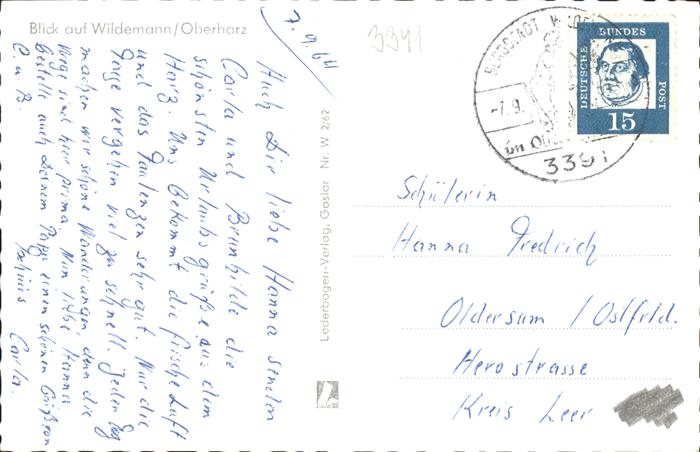 Blick auf Wildemann/Oberharz
7.9.64
Auch Dir liebe Hanna senden
Carla und Brunhilde die
schönsten Urlaubsgrüße aus dem
Harz. Uns bekommt die frische Luft
und das Faulenzen sehr gut. Nur die
Tage vergehen viel zu schnell. Jeden Tag
machen wir schöne Wanderungen, denn die
Wege sind hier prima. Nun liebe Hanna
bestelle auch Deinem Papa einen schönen Gruß von
C. u. B.
Carla
Lederbogen-Verlag, Goslar Nr. W 2/62
3391
BERGSTADT
-7.9.
im
3391
DEUTSCHE
BUNDES
POST
15
Schülerin
Hanna Fredrich
Oldersum / Ostfrld.
Herostrasse
Kreis Leer